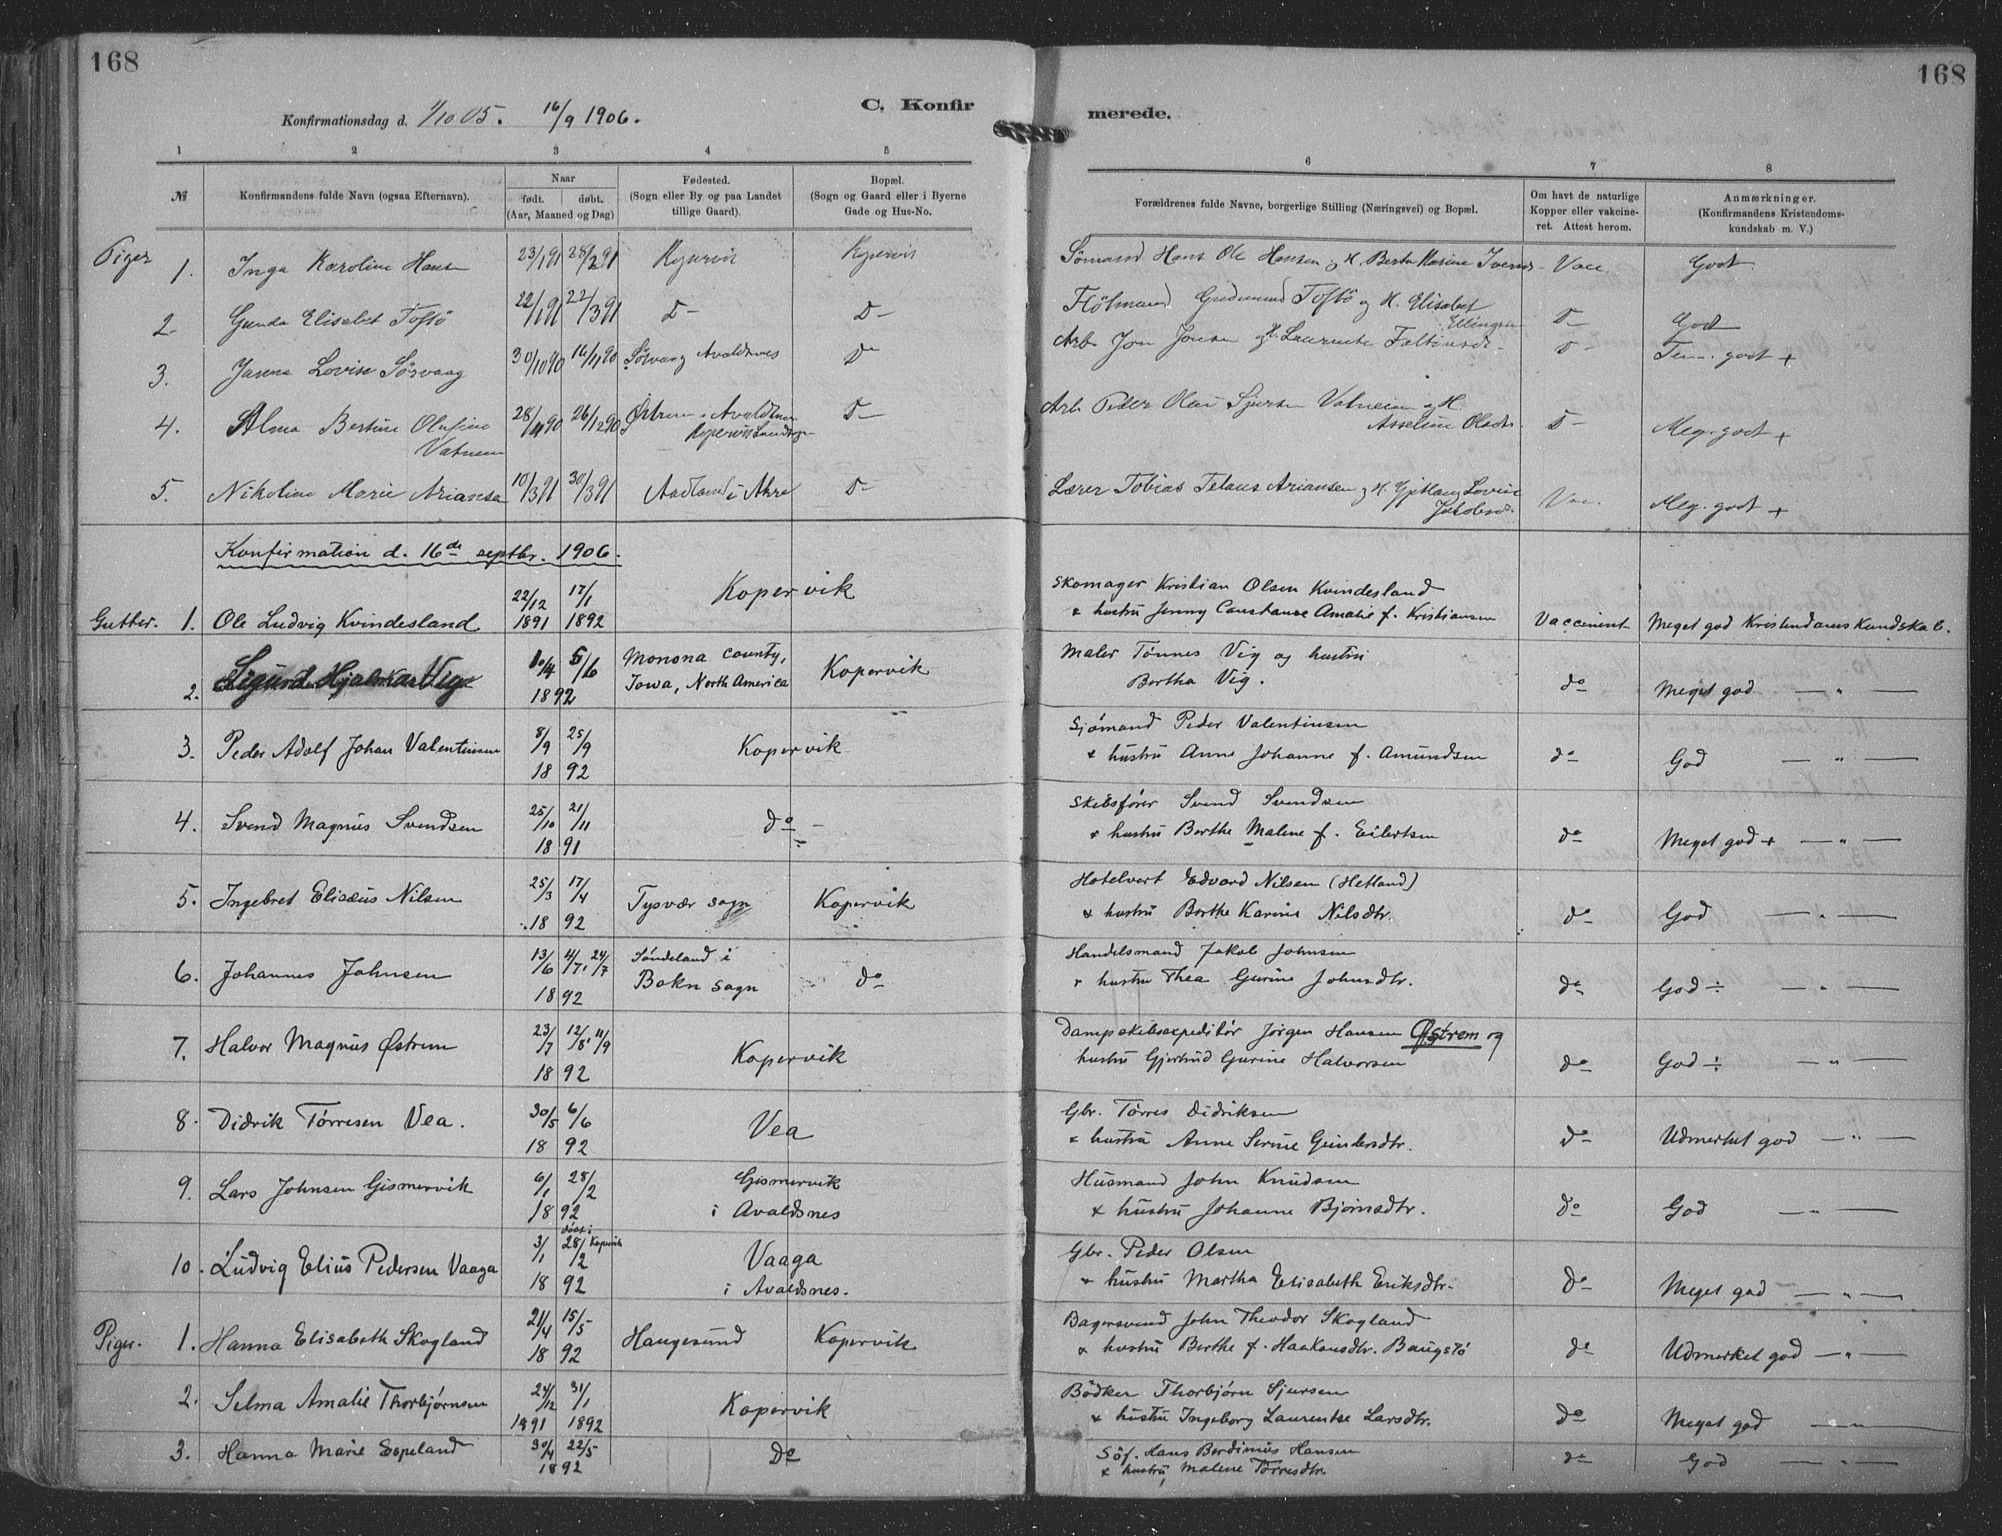 168
168
Konfirmationsdag d. 1/10 05. 16/9 1906.
C. Konfirmerede.
1 2 3 4 5 6 7 8
№
Konfirmandens fulde Navn (ogsaa Efternavn).
Naar
født. døbt.
(Aar, Maaned og Dag)
Fødested.
(Sogn eller By og paa Landet
tillige Gaard).
Bopæl.
(Sogn og Gaard eller i Byerne
Gade og Hus-No.
Forældrenes fulde Navne, borgerlige Stilling (Næringsvei) og Bopæl.
Om havt de naturlige
Kopper eller vakcine-
ret. Attest herom.
Anmærkninger.
(Konfirmandens Kristendoms-
kundskab m. V.)
Piger 1. Inga Karoline Hansen 23/1 91 28/2 91 Sømand Hans Ole Hansen og H. Berta Karine Vacc. Godt
2 Gunda Elisabet Toftö 22/1 91 22/3 91 D– D– Gudmund Toftö og H. Elisabet
Ellingsen D– Godt
3. Janna Lovise Sörvaag 30/10 90 16/11 90 Avaldsnes Do Arb. Jon Jonsen D– godt +
4. Alma Bertine Olufine
Vatnem 28/11 90 26/12 90 i Avaldsnes D– Arb. Peder Olai Sjursen Vatnem og H.
Asseline D– Meg. godt +
5. Nikoline Marie Ariansen 10/3 91 30/3 91 Aadland i Akre D– Lærer Tobias Ariansen og H. Lovise
Vac. Meg. godt +
Konfirmation d. 16de septbr. 1906.
Gutter. 1. Ole Ludvig Kvindesland 22/12 1891 17/1 1892 Kopervik Skomager Kristian Olsen Kvindesland
& hustru Jenny Constanse Amalie f. Kristiansen Vaccinert Meget god Kristendomskundskab.
2. Sigurd Hjalmar Vig 10/4 5/6 1892 Monona County,
Iowa, North America Kopervik Maler Tønnes Vig og hustru
Bertha Vig. do Meget god — " —
3. Peder Adolf Johan Valentinsen 8/9 25/9 1892 Kopervik Sjømand Peder Valentinsen
& hustru Anne Johanne f. Amundsen do God — " —
4. Svend Magnus Svendsen 25/10 21/11 1891 do Skibsfører Svend Svendsen
& hustru Berthe Malene f. Eilertsen do Meget god + — " —
5. Ingebret Elisæus Nilsen 25/3 17/4 1892 Tysvær sogn Kopervik Hotelvert Edvard Nilsen (Hetland)
& hustru Berthe Karine Nilsdtr. do God — " —
6. Johannes Johnsen 13/6 24/7 1892 Søndeland i
Bokn sogn do Handelsmand Jakob Johnsen
& hustru Thea Gurine Johnsdtr. do God ÷ — " —
7. Halvor Magnus Østrem 23/7 12/8, 11/9 1892 Kopervik Dampskibsexpeditør Jørgen Hansen Østrem og
hustru Gjertrud Gurine Halvorsen do God ÷ — " —
8. Didrik Tørresen Vea. 30/5 6/6 1892 Vea Gbr. Tørres Didriksen
& hustru Anne Serine Gundersdtr. do Udmerket god — " —
9. Lars Johnsen Gismervik 6/1 28/2 1892 Gismervik
i Avaldsnes Husmand John Knudsen
& hustru Johanne Bjørnsdtr. do God — " —
10. Ludvig Elius Pedersen Vaaga 3/1 døbt i Kopervik 28/2 1892 Vaaga
i Avaldsnes. Gbr. Peder Olsen
& hustru Martha Elisabeth Eriksdtr. do Meget god — " —
Piger. 1. Hanna Elisabeth Skogland 21/4 15/5 1892 Haugesund Kopervik Bagersvend John Theodor Skogland
& hustru Berthe f. Haakonsdtr. Baugstø do Udmerket god — " —
2. Selma Amalie Thorbjørnsen 24/12 1891 31/1 1892 Kopervik Bødker Thorbjørn Sjursen
& hustru Ingeborg Laurentse Larsdtr. do Meget god — " —
3. Hanna Marie Sopeland 30/4 22/5 1892 Do Søf. Hans Berdinius Hansen
& hustru Malene Tørresdtr. do God — " —